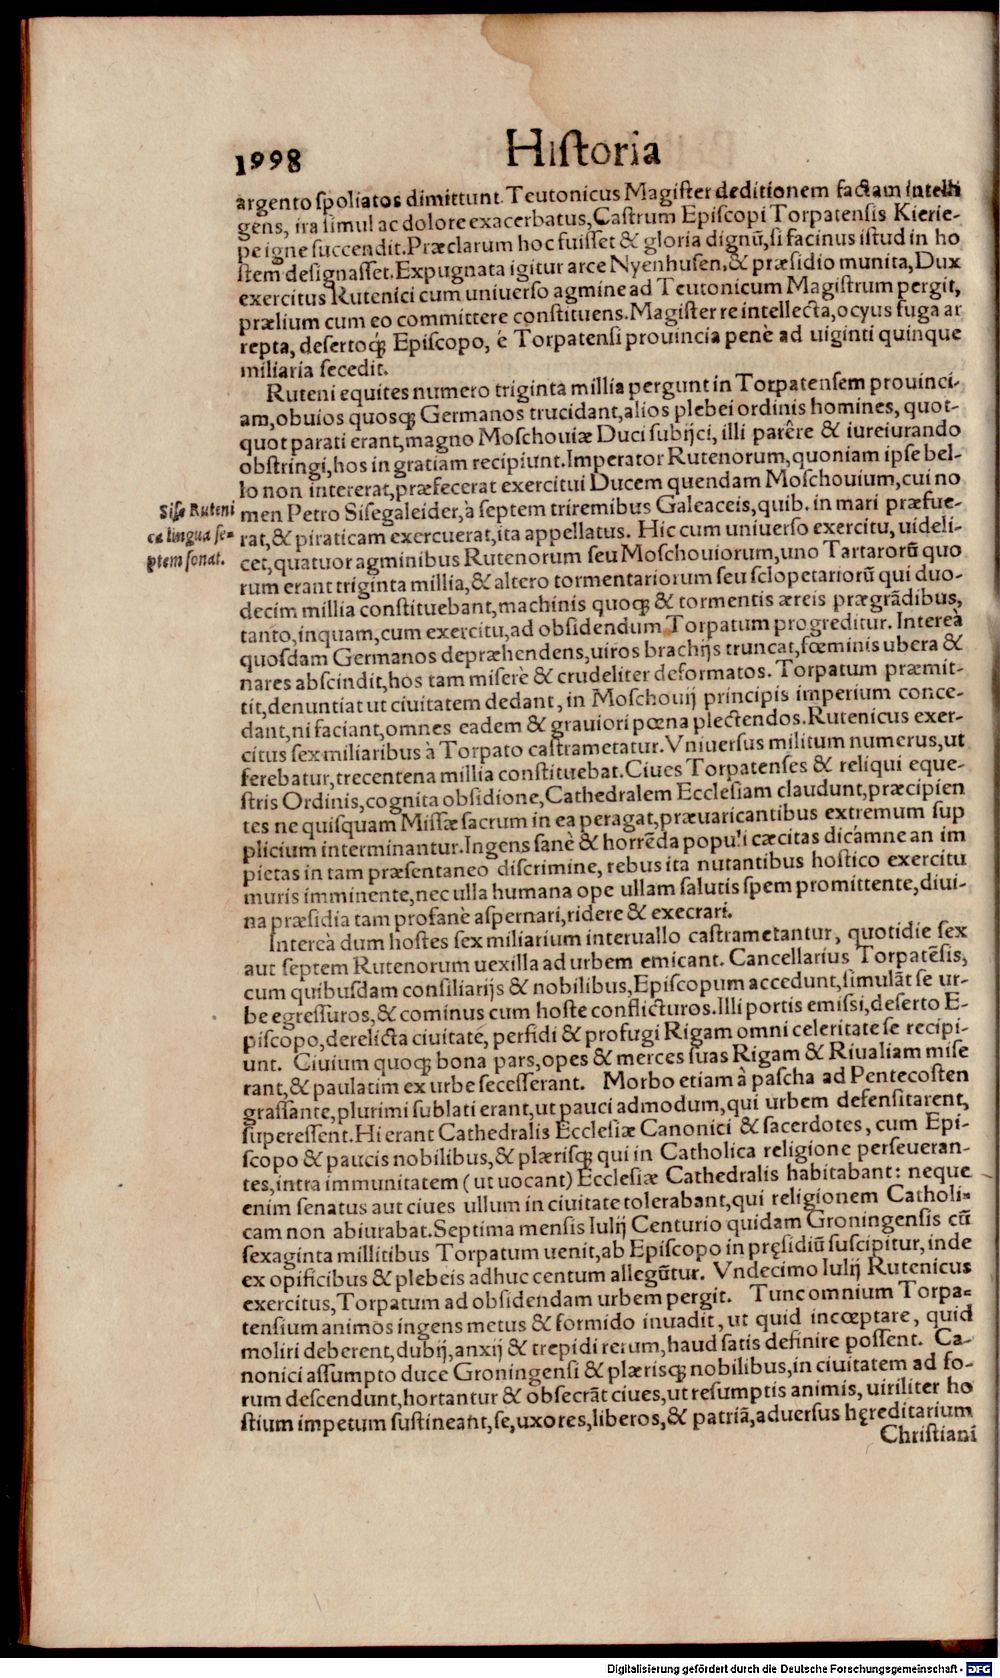 1998 Hiſtoria
argento ſpoliatos dimittunt. Teutonicus Magiſter deditionem factam intelli
gens, ira ſimul ac dolore exacerbatus, Caſtrum Epiſcopi Torpatenſis Kierie-
pe igne ſuccendit. Præclarum hoc fuiſſet & gloria dignũ, ſi facinus iſtud in ho
ſtem deſignaſſet. Expugnata igitur arce Nyenhuſen, & præſidio munita, Dux
exercitus Rutenici cum uniuerſo agmine ad Teutonicum Magiſtrum pergit,
prælium cum eo committere conſtituens. Magiſter re intellecta, ocyus fuga ar
repta, deſertoq́; Epiſcopo, é Torpatenſi prouincia penè ad uiginti quinque
miliaria ſecedit.
Ruteni equites numero triginta millia pergunt in Torpatenſem prouinci-
am, obuios quosq; Germanos trucidant, alios plebei ordinis homines, quot-
quot parati erant, magno Moſchouiæ Duci ſubijci, illi parêre & iureiurando
obſtringi, hos in gratiam recipiunt. Imperator Rutenorum, quoniam ipſe bel-
lo non intererat, præfecerat exercitui Ducem quendam Moſchouium, cui no
men Petro Siſegaleider, à ſeptem triremibus Galeaceis, quib. in mari præfue-
rat, & piraticam exercuerat, ita appellatus. Hic cum uniuerſo exercitu, uideli-
Siſe Ruteni
ca lingua ſe-
ptem ſonat.
cet, quatuor agminibus Rutenorum ſeu Moſchouiorum, uno Tartarorũ quo
rum erant triginta millia, & altero tormentariorum ſeu ſclopetariorũ qui duo-
decim millia conſtituebant, machinis quoq; & tormentis æreis prægrãdibus,
tanto, inquam, cum exercitu, ad obſidendum Torpatum progreditur. Intereà
quoſdam Germanos depræhendens, uiros brachijs truncat, fœminis ubera &
nares abſcindit, hos tam miſerè & crudeliter deformatos. Torpatum præmit-
tit, denuntiat ut ciuitatem dedant, in Moſchouij principis imperium conce-
dant, ni faciant, omnes eadem & grauiori pœna plectendos. Rutenicus exer-
citus ſex miliaribus à Torpato caſtrametatur. Vniuerſus militum numerus, ut
ferebatur, trecentena millia conſtituebat. Ciues Torpatenſes & reliqui eque-
ſtris Ordinis, cognita obſidione, Cathedralem Eccleſiam claudunt, præcipien
tes ne quiſquam Miſſæ ſacrum in ea peragat, præuaricantibus extremum ſup
plicium interminantur. Ingens ſanè & horrẽda populi cæcitas dicámne an im
pietas in tam præſentaneo diſcrimine, rebus ita nutantibus hoſtico exercitu
muris imminente, nec ulla humana ope ullam ſalutis ſpem promittente, diui-
na præſidia tam profanè aſpernari, ridere & execrari.
Intereà dum hoſtes ſex miliarium interuallo caſtrametantur, quotidie ſex
aut ſeptem Rutenorum uexilla ad urbem emicant. Cancellarius Torpatẽſis,
cum quibuſdam conſiliarijs & nobilibus, Epiſcopum accedunt, ſimulãt ſe ur-
be egreſſuros, & cominus cum hoſte conflicturos. Illi portis emiſſi, deſerto E-
piſcopo, derelicta ciuitate, perfidi & profugi Rigam omni celeritate ſe recipi-
unt. Ciuium quoq; bona pars, opes & merces ſuas Rigam & Riualiam miſe
rant, & paulatim ex urbe ſeceſſerant. Morbo etiam à paſcha ad Pentecoſten
graſſante, plurimi ſublati erant, ut pauci admodum, qui urbem defenſitarent,
ſupereſſent. Hi erant Cathedralis Eccleſiæ Canonici & ſacerdotes, cum Epi-
ſcopo & paucis nobilibus, & plærisq; qui in Catholica religione perſeueran-
tes, intra immunitatem (ut uocant) Eccleſiæ Cathedralis habitabant: neque
enim ſenatus aut ciues ullum in ciuitate tolerabant, qui religionem Catholi-
cam non abiurabat. Septima menſis Iulij Centurio quidam Groningenſis cũ
ſexaginta millitibus Torpatum uenit, ab Epiſcopo in pręſidiũ ſuſcipitur, inde
ex opificibus & plebeis adhuc centum allegũtur. Vndecimo Iulij Rutenicus
exercitus, Torpatum ad obſidendam urbem pergit. Tunc omnium Torpa-
tenſium animos ingens metus & formido inuadit, ut quid incœptare, quid
moliri deberent, dubij, anxij & trepidi rerum, haud ſatis definire poſſent. Ca-
nonici aſſumpto duce Groningenſi & plærisq; nobilibus, in ciuitatem ad fo-
rum deſcendunt, hortantur & obſecrãt ciues, ut reſumptis animis, uiriliter ho
ſtium impetum ſuſtineant, ſe, uxores, liberos, & patriã, aduerſus hęreditarium
Chriſtiani
Digitalisierung gefördert durch die Deutsche Forschungsgemeinschaft - DFG